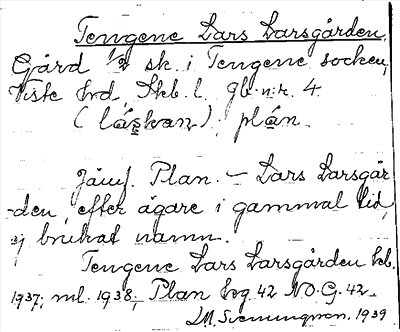 Tengene Lars Larsgården.
Gård 1/2 sk. i Tengene socken,
Viste hrd, Skb. l. gb. n:r. 4.
(láskan), plán.
Jämf. Plan. – Lars Larsgår-
-den, efter ägare i gammal tid,
ej brukat namn.
Tengene Lars Larsgården
1937, ml. 1938, Plan bog. 42 N.O.G. 42.
Svenningson. 1939